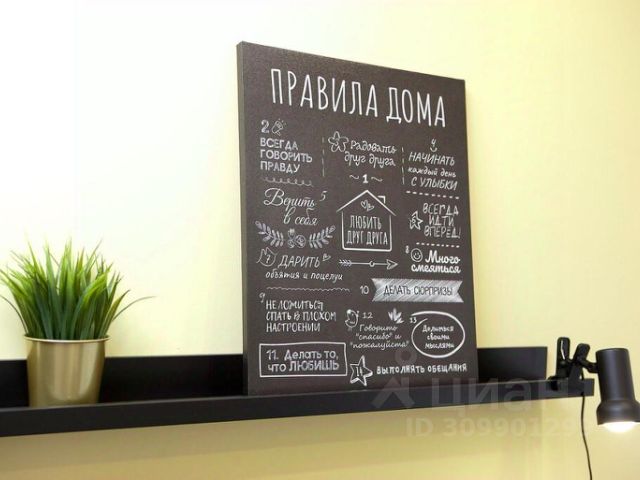 ПРАВИЛА ДОМА
2
ВСЕГДА
ГОВОРИТЬ
ПРАВДУ
Радовать
друг друга
~1~
4
НАЧИНАТЬ
каждый день
С УЛЫБКИ
Верить 5
в себя
ЛЮБИТЬ
ДРУГ ДРУГА
ВСЕГДА
ИДТИ
ВПЕРЕД!
7 ДАРИТЬ
объятия и поцелуи
8 Много
смеяться
10 ДЕЛАТЬ СЮРПРИЗЫ
9 НЕ ЛОЖИТЬСЯ
СПАТЬ В ПЛОХОМ
НАСТРОЕНИИ
12
Говорить
"спасибо" и
"пожалуйста"
13
Делиться
своими
мыслями
11. Делать то,
что ЛЮБИШЬ
ВЫПОЛНЯТЬ ОБЕЩАНИЯ
циан